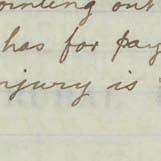 ointing out
has for pay
injury is